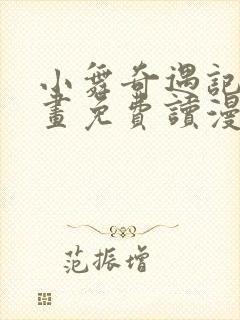 小舞奇遇記
畫免費讀漫
范振增